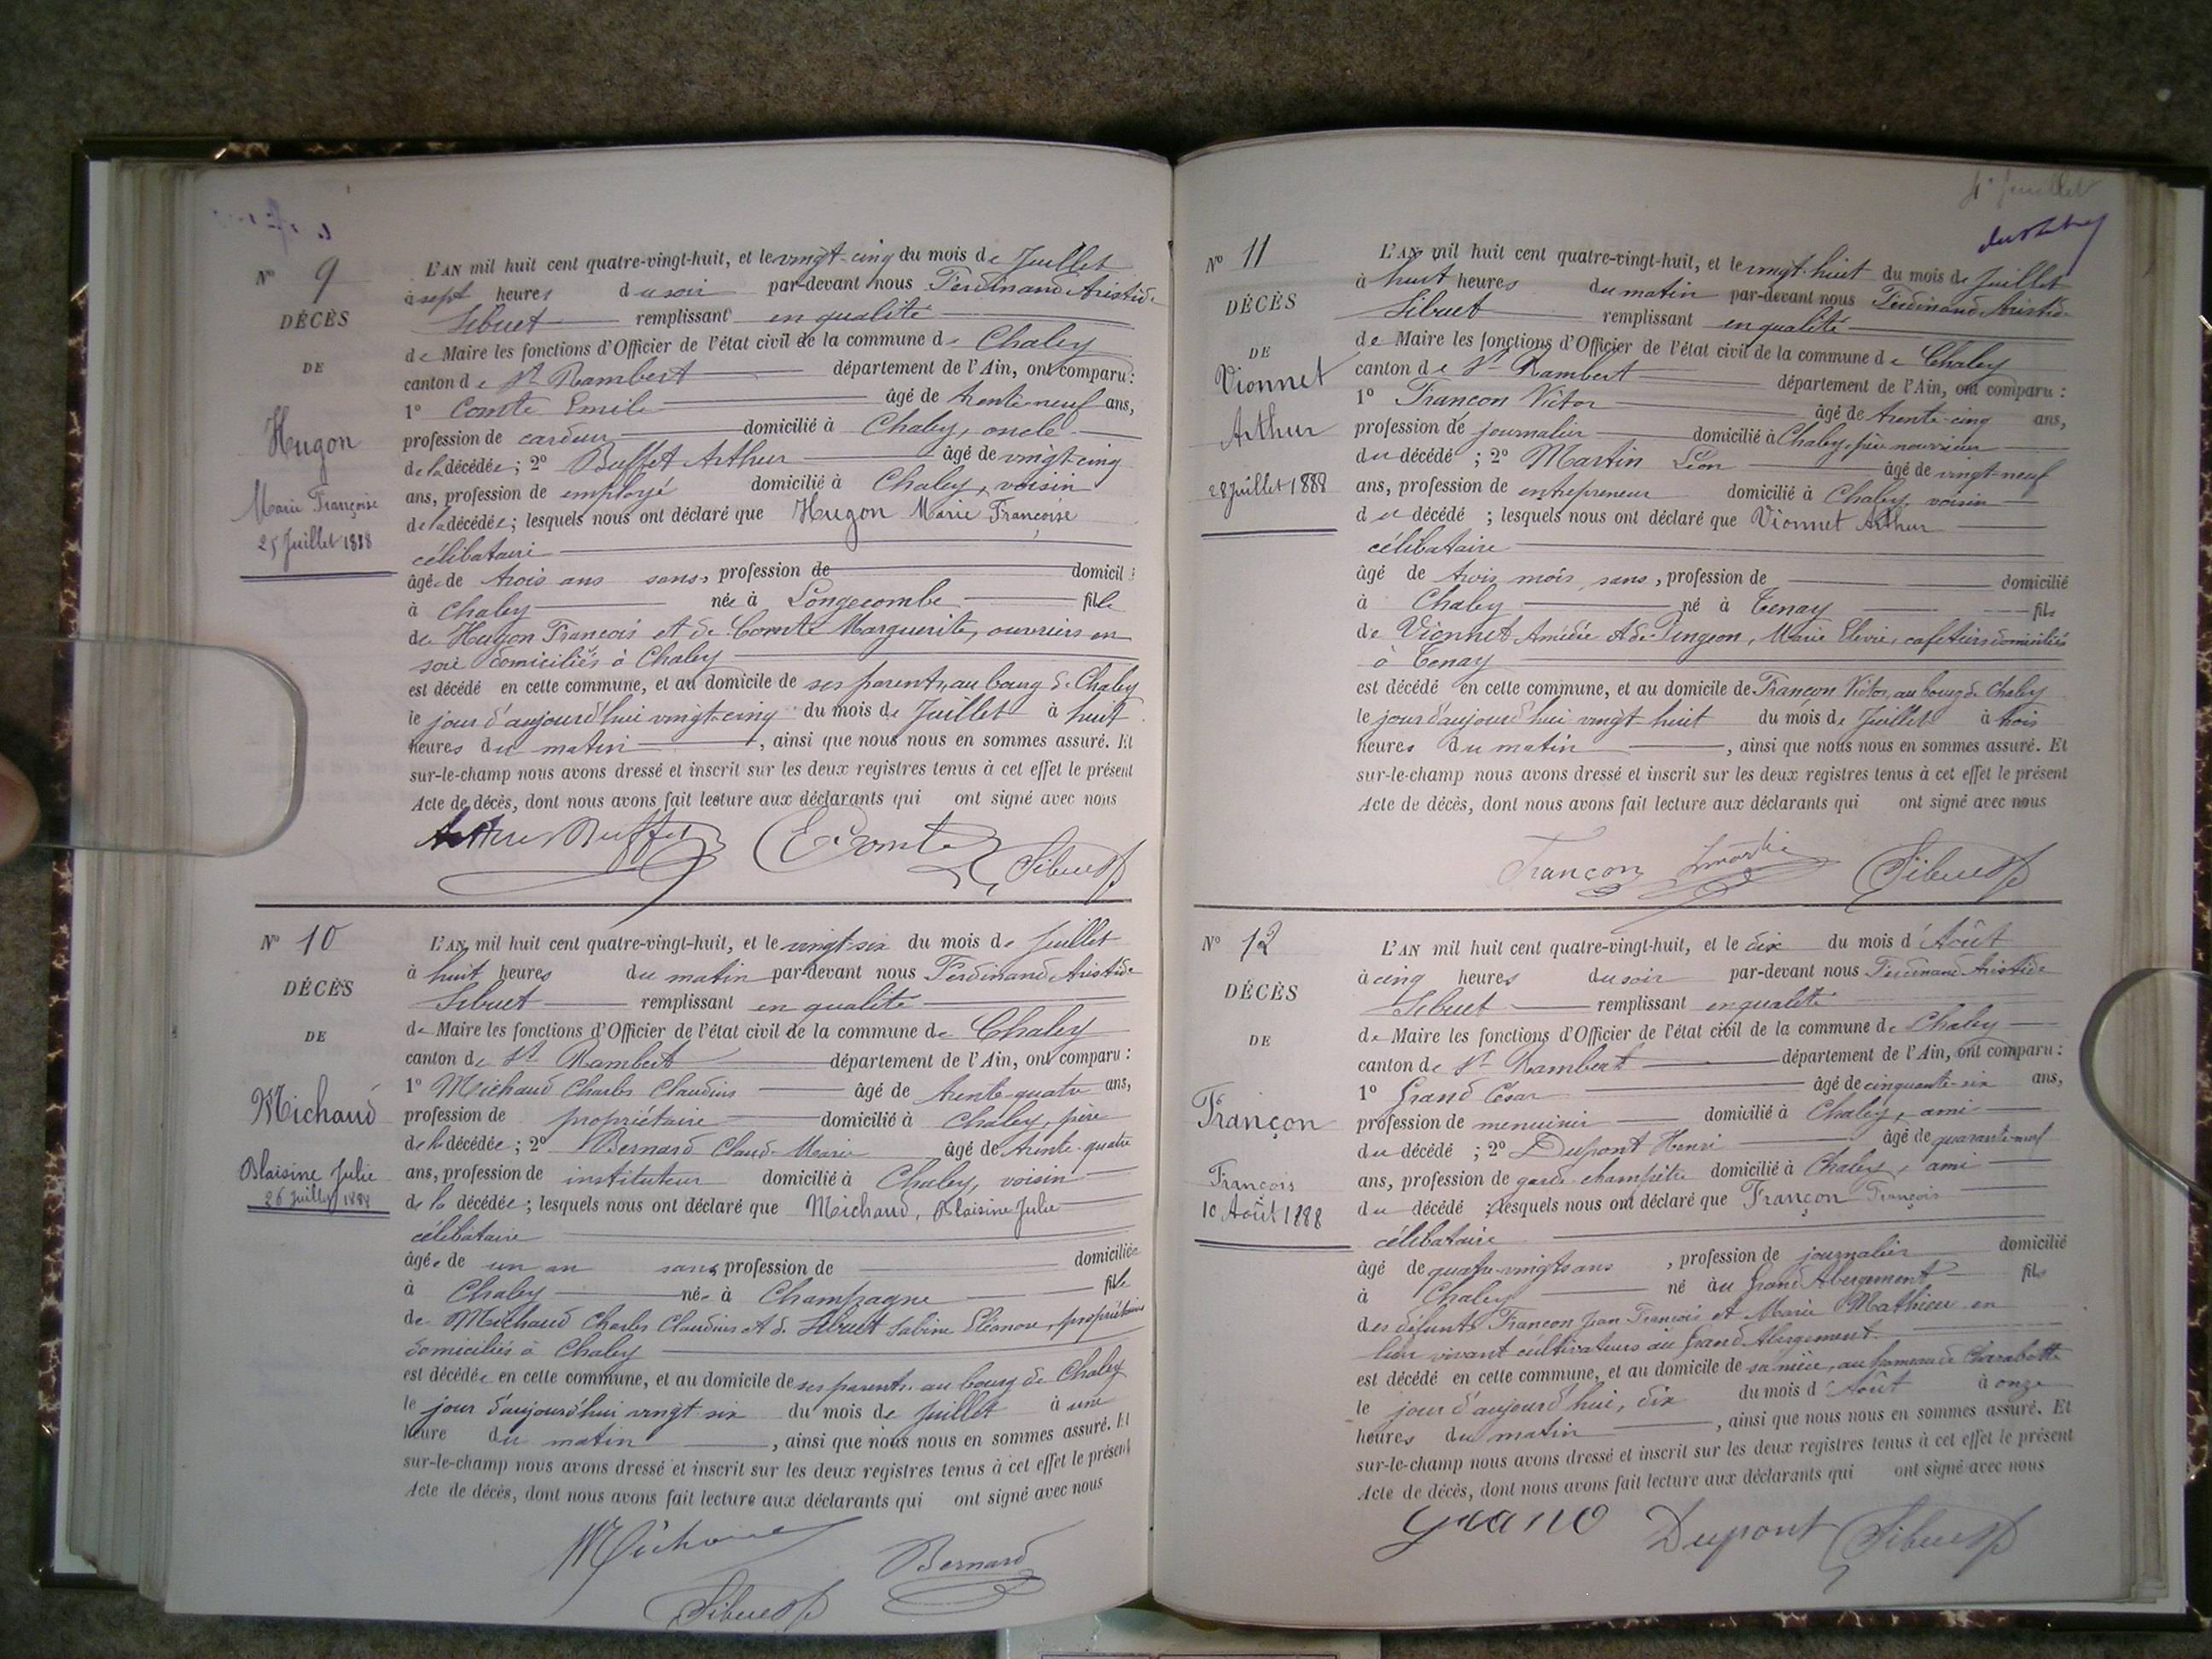 N° 9
DÉCÈS
DE
Hugon
Marie Françoise
25 Juillet 1888
L'AN mil huit cent quatre-vingt-huit, et le vingt-cinq du mois de Juillet
à sept heures du soir par-devant nous Ferdinand Aristide
Sibuet remplissant en qualité
de Maire les fonctions d'Officier de l'état civil de la commune de Chaley
canton de St Rambert département de l'Ain, ont comparu :
1° Comte Emile âgé de trente-neuf ans,
profession de cardeur domicilié à Chaley, oncle
de la décédée ; 2° Buffet Arthur âgé de vingt-cinq
ans, profession de employé domicilié à Chaley, voisin
de la décédée ; lesquels nous ont déclaré que Hugon Marie Françoise
célibataire
âgée de trois ans sans, profession de domicil
à Chaley née à Longecombe fille
de Hugon François et de Comte Marguerite, ouvriers en
soie domiciliés à Chaley
est décédé en cette commune, et au domicile de ses parents, au bourg de Chaley
le jour d'aujourd'hui vingt-cinq du mois de Juillet à huit
heures du matin , ainsi que nous nous en sommes assuré. Et
sur-le-champ nous avons dressé et inscrit sur les deux registres tenus à cet effet le présent
Acte de décès, dont nous avons fait lecture aux déclarants qui ont signé avec nous
Arthur Buffet E Comte Sibuet
N° 10
DÉCÈS
DE
Michaud
Blaisine Julie
26 Juillet 1888
L'AN mil huit cent quatre-vingt-huit, et le vingt-six du mois de Juillet
à huit heures du matin par-devant nous Ferdinand Aristide
Sibuet remplissant en qualité
de Maire les fonctions d'Officier de l'état civil de la commune de Chaley
canton de St Rambert département de l'Ain, ont comparu :
1° Michaud Charles Claudius âgé de trente-quatre ans,
profession de propriétaire domicilié à Chaley, père
de la décédée ; 2° Bernard Claude Marie âgé de trente-quatre
ans, profession de instituteur domicilié à Chaley, voisin
de la décédée ; lesquels nous ont déclaré que Michaud, Blaisine Julie
célibataire
âgée de un an sans, profession de domiciliée
à Chaley née à Champagne fille
de Michaud Charles Claudius et de Sibuet Sabine Eléonore, propriétaires
domiciliés à Chaley
est décédée en cette commune, et au domicile de ses parents au bourg de Chaley
le jour d'aujourd'hui vingt six du mois de Juillet à une
heure du matin , ainsi que nous nous en sommes assuré. Et
sur-le-champ nous avons dressé et inscrit sur les deux registres tenus à cet effet le présent
Acte de décès, dont nous avons fait lecture aux déclarants qui ont signé avec nous
Michaud Bernard
Sibuet
4e feuillet
N° 11
DÉCÈS
DE
Vionnet
Arthur
28 Juillet 1888
L'AN mil huit cent quatre-vingt-huit, et le vingt-huit du mois de Juillet
à huit heures du matin par-devant nous Ferdinand Aristide
Sibuet remplissant en qualité
de Maire les fonctions d'Officier de l'état civil de la commune de Chaley
canton de St Rambert département de l'Ain, ont comparu :
1° Françon Victor âgé de trente-cinq ans,
profession de journalier domicilié à Chaley, père nourricier
du décédé ; 2° Martin Léon âgé de vingt-neuf
ans, profession de entrepreneur domicilié à Chaley, voisin
du décédé ; lesquels nous ont déclaré que Vionnet Arthur
célibataire
âgé de trois mois sans, profession de domicilié
à Chaley né à Tenay fils
de Vionnet Amédée et de Pingeon, Marie Elevie, cafetiers domiciliés
à Tenay
est décédé en cette commune, et au domicile de Françon Victor, au bourg de Chaley
le jour d'aujourd'hui vingt huit du mois de Juillet à trois
heures du matin , ainsi que nous nous en sommes assuré. Et
sur-le-champ nous avons dressé et inscrit sur les deux registres tenus à cet effet le présent
Acte de décès, dont nous avons fait lecture aux déclarants qui ont signé avec nous
Françon Lmartin Sibuet
N° 12
DÉCÈS
DE
Françon
François
10 Août 1888
L'AN mil huit cent quatre-vingt-huit, et le dix du mois d'Août
à cinq heures du soir par-devant nous Ferdinand Aristide
Sibuet remplissant en qualité
de Maire les fonctions d'Officier de l'état civil de la commune de Chaley
canton de St Rambert département de l'Ain, ont comparu :
1° Grand César âgé de cinquante-six ans,
profession de menuisier domicilié à Chaley, ami
du décédé ; 2° Dupont Henri âgé de quarante-neuf
ans, profession de garde champêtre domicilié à Chaley, ami
du décédé ; lesquels nous ont déclaré que Françon François
célibataire
âgé de quatre-vingts ans , profession de journalier domicilié
à Chaley né au Grand Abergement fils
des défunts Françon Jean François et Marie Mathieu en
leur vivant cultivateurs au Grand Abergement
est décédé en cette commune, et au domicile de sa nièce, au hameau de Charabotte
le jour d'aujourd'hui, dix du mois d'Août à onze
heures du matin , ainsi que nous nous en sommes assuré. Et
sur-le-champ nous avons dressé et inscrit sur les deux registres tenus à cet effet le présent
Acte de décès, dont nous avons fait lecture aux déclarants qui ont signé avec nous
Grand Dupont Sibuet